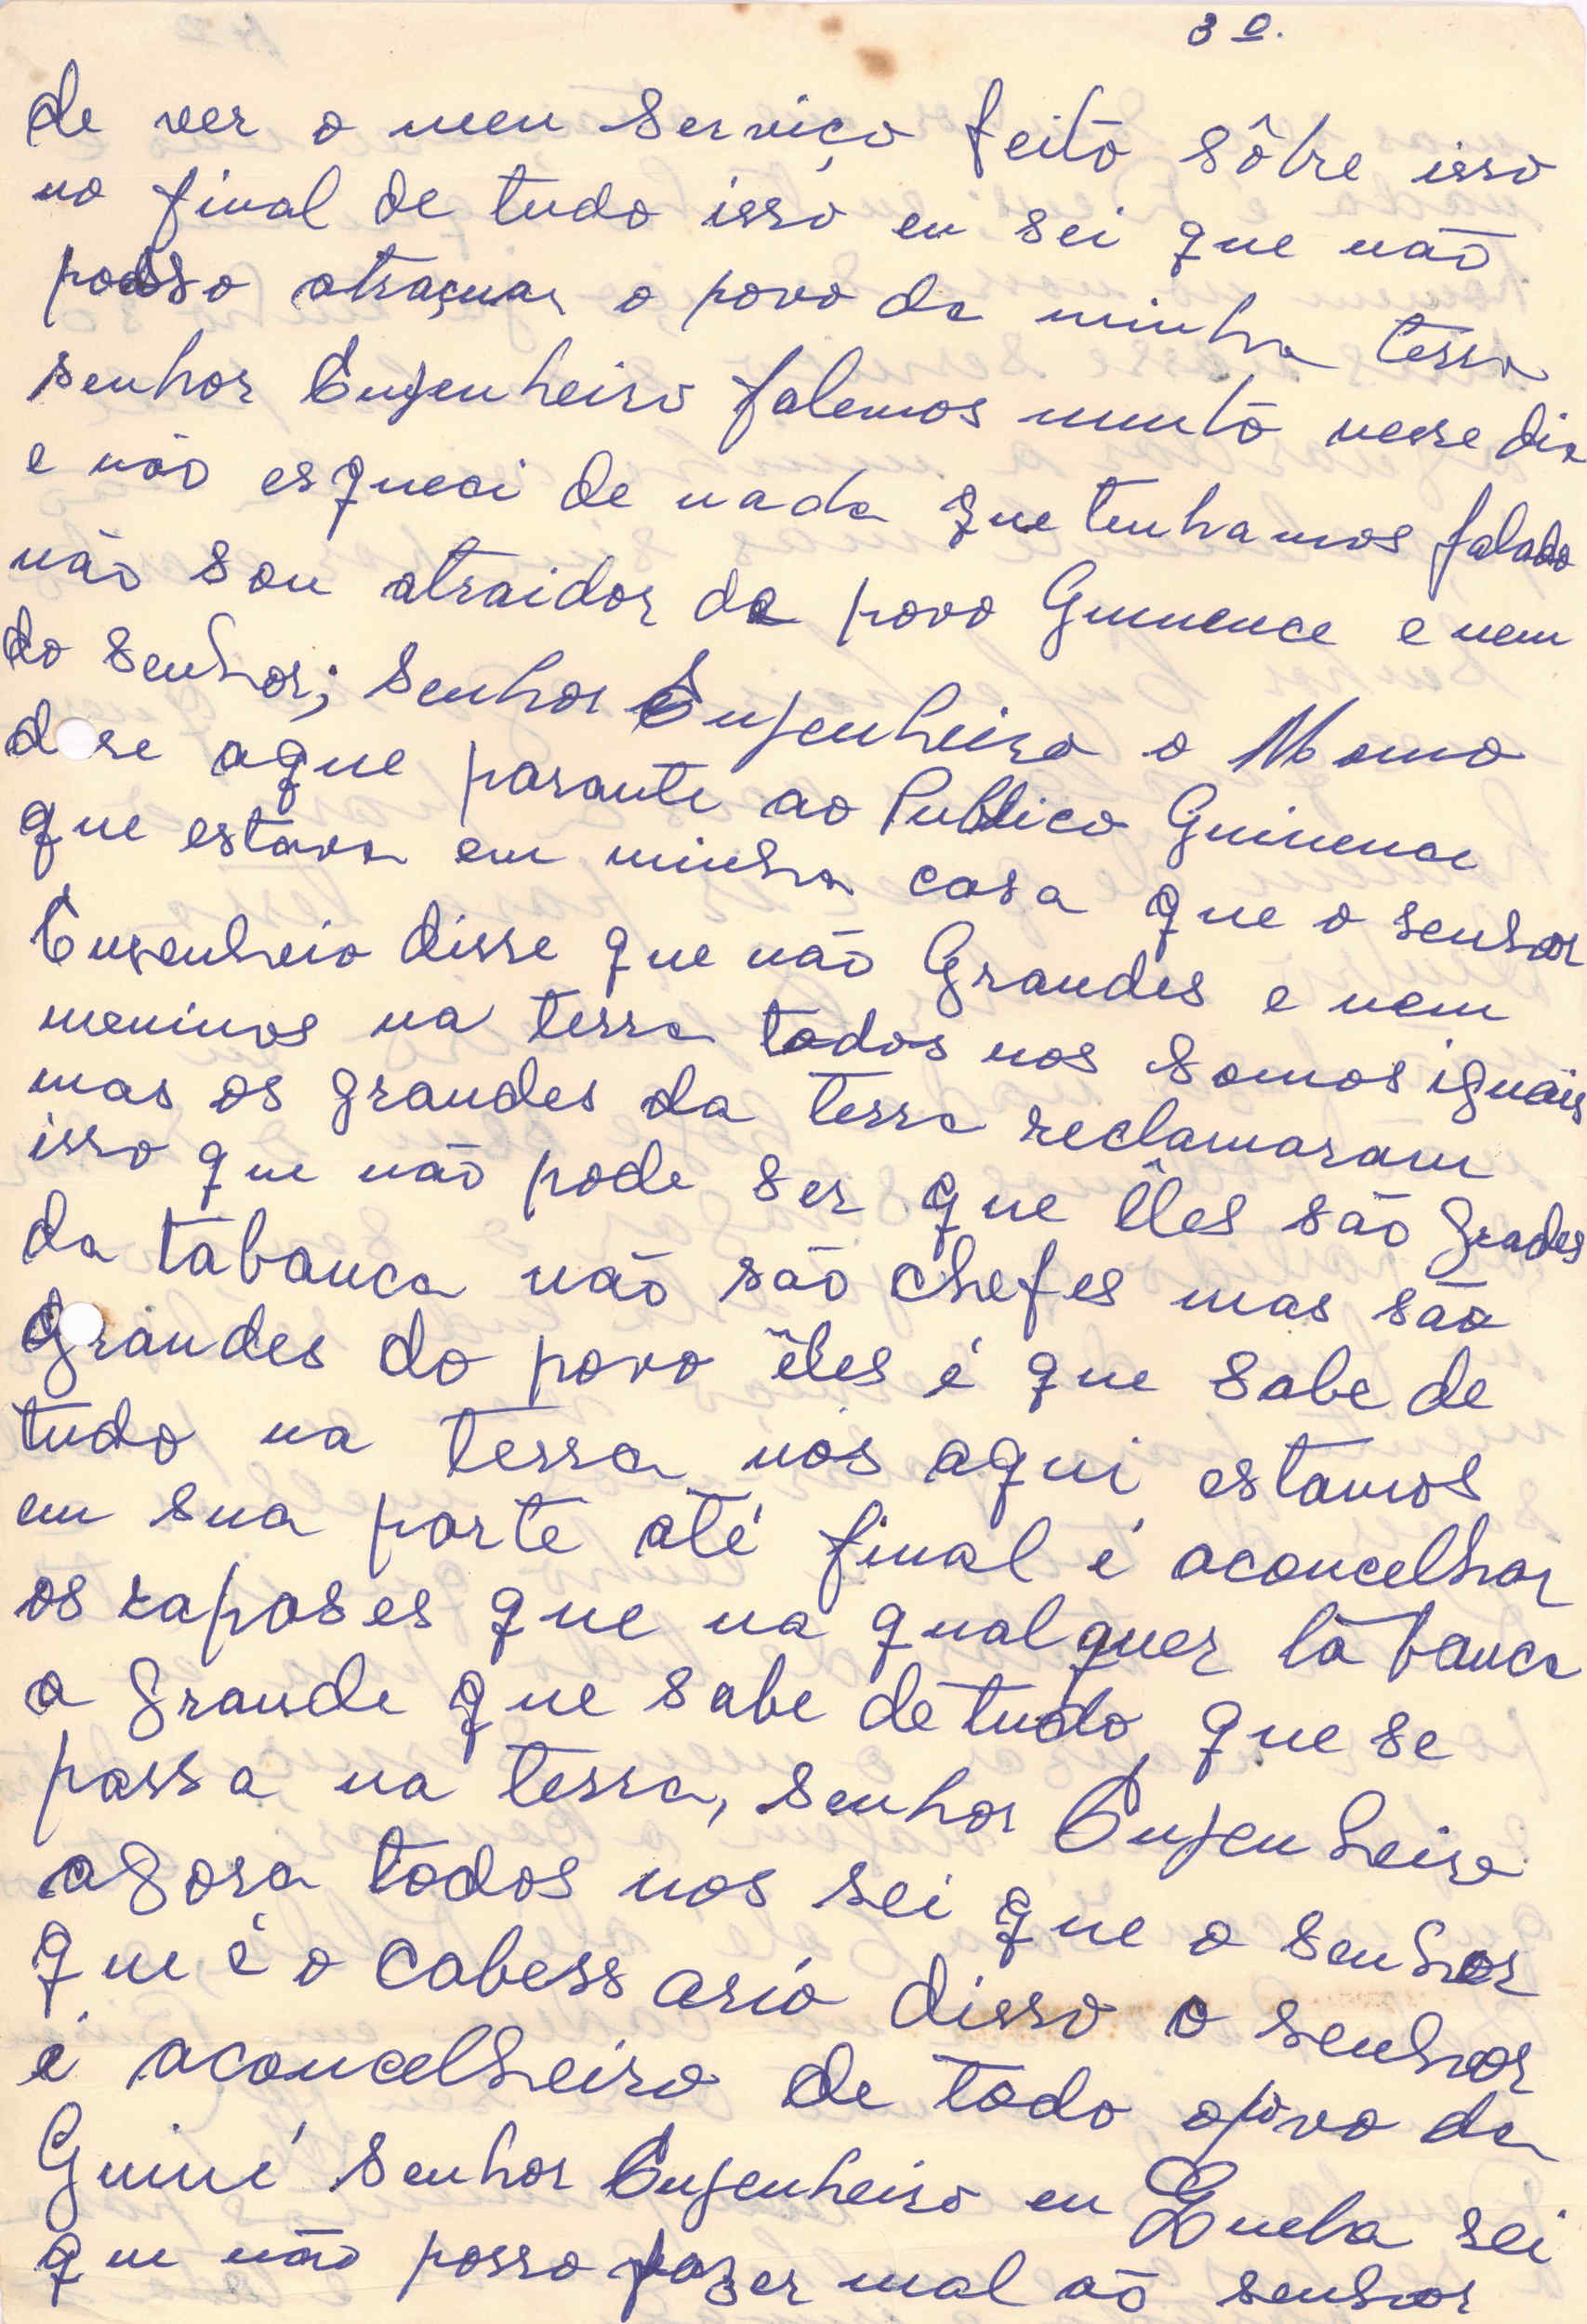 3º.
de ver o meu serviço feito sôbre isso
no final de tudo isso eu sei que não
posso atraçuar o povo da minha terra
senhor Engenheiro falemos munto nesse dia
e não esqueci de nada que tenhamos falado
não sou atraidor do povo Guinence e nem
do senhor; senhor Engenheiro o Momo
dise aque parante ao Publico Guinence
que estava em minha casa que o senhor
Engenheio disse que não Grandes e nem
meninos na terra todos nos somos iguais
mas os grandes da terra reclamaram
isso que não pode ser que êles são grades
da tabanca não são chefes mas são
Grandes do povo êles é que sabe de
tudo na terra nós aqui estamos
em sua parte até final é aconcelhar
os rapases que na qualquer tabanca
a grande que sabe de tudo que se
passa na terra, senhor Engenheiro
agora todos nos sei que o senhor
que é o cabessario disso o senhor
é aconcelheiro de todo o povo da
Guiné senhor Engenheiro eu Lueba sei
que não posso fazer mal aõ senhor